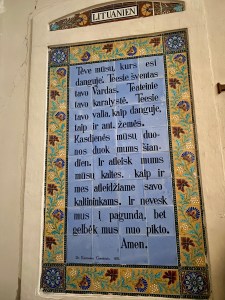 LITUANIEN
Tėve mūsų, kurs esi
danguje, Teesie šventas
tavo Vardas. Teateinie
tavo karalystė. Teesie
tavo valia, kaip danguje,
taip ir ant žemės.
Kasdienės mūsų duo-
nos duok mums šian-
dien. Ir atleisk mums
mūsų kaltes, kaip ir
mes atleidžiame savo
kaltininkams. Ir nevesk
mus į pagundą, bet
gelbėk mus nuo pikto.
Amen.